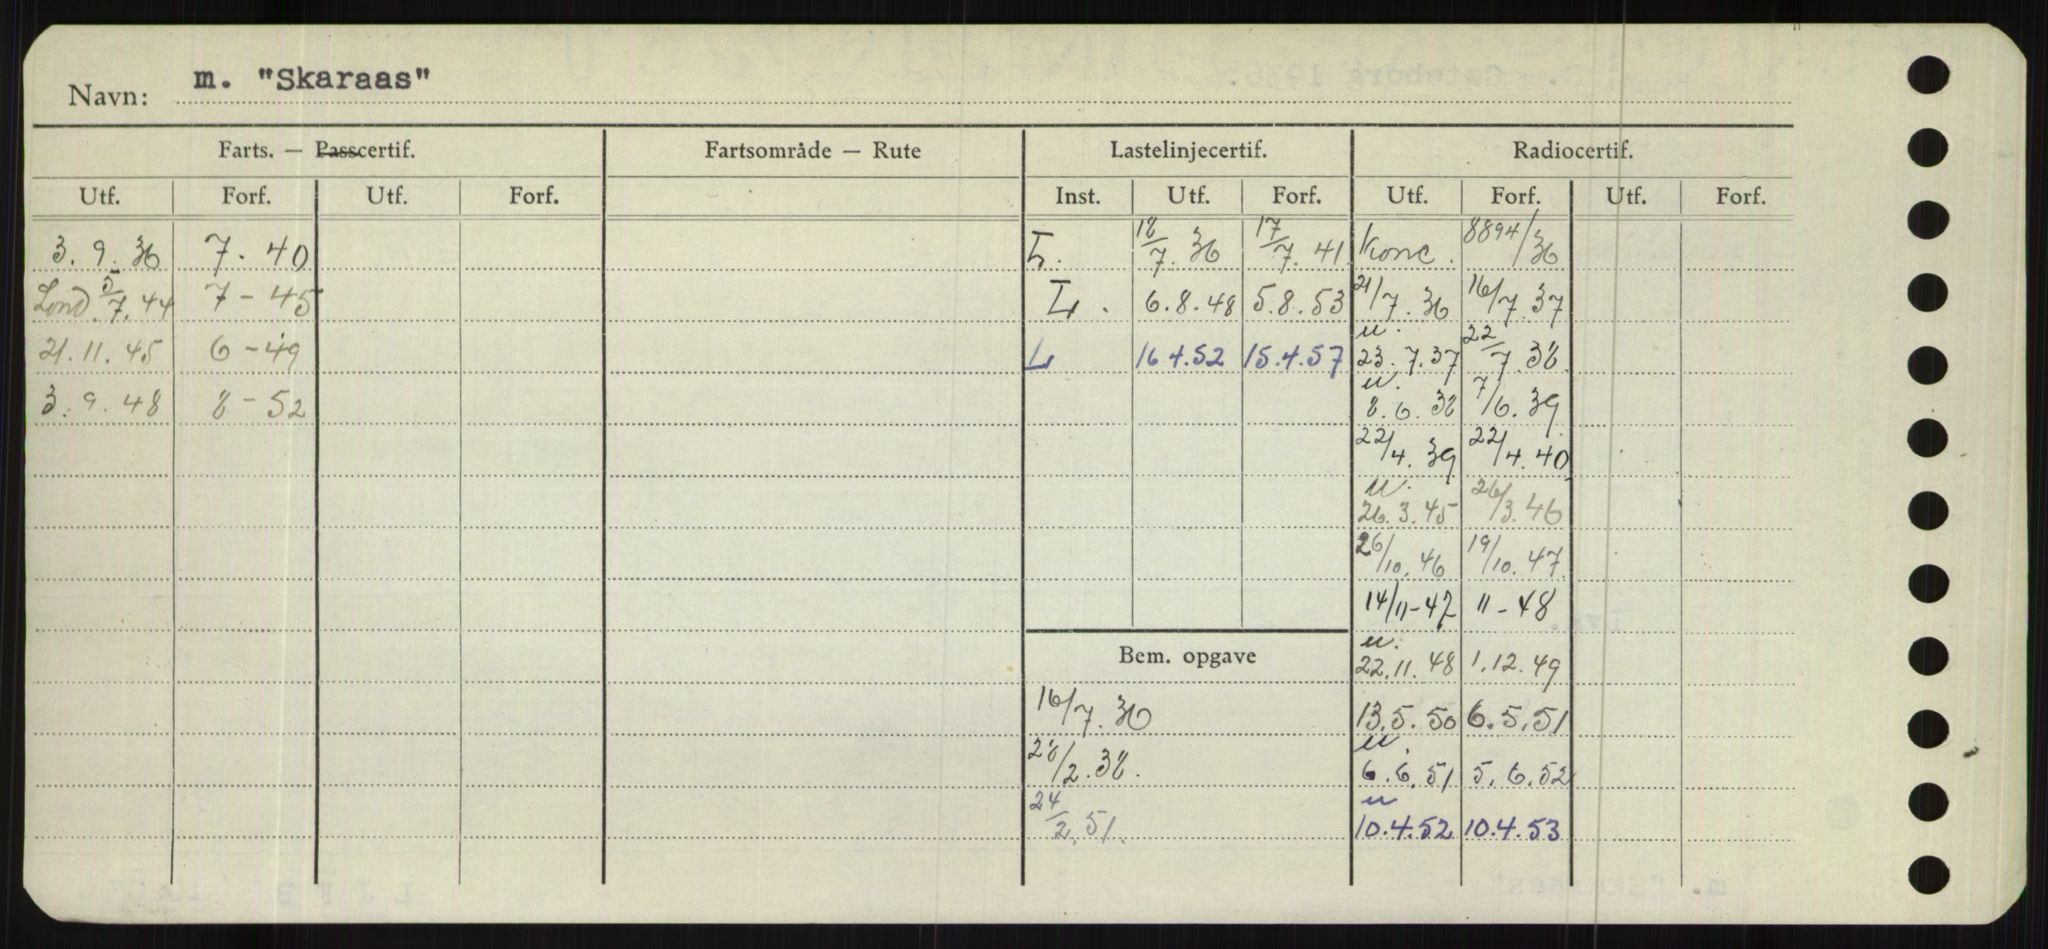 Navn: m. "Skaraas"
Farts. — Passcertif. Fartsområde — Rute Lastelinjecertif. Radiocertif.
Utf. Forf. Utf. Forf. Inst. Utf. Forf. Utf. Forf. Utf. Forf.
3. 9. 36 7. 40 L. 18/7. 36 17/7. 41 Konc. 8894/36
Lond. 5/7. 44 7 - 45 L. 6. 8. 48 5. 8. 53 21/7. 36 16/7. 37
21. 11. 45 6 - 49 L 16 4. 52 15. 4. 57 u. 23. 7. 37 22/7. 38.
3. 9. 48 8 - 52 u. 8. 6. 38 7/6. 39
22/4. 39 22/4. 40
u. 26. 3. 45 26/3. 46
26/10. 46 19/10. 47
14/11 - 47 11 - 48
Bem. opgave u. 22. 11. 48 1. 12. 49
16/7. 36 13. 5. 50 6. 5. 51
28/2. 38. u. 6. 6. 51 5. 6. 52
24/2. 51. u 10. 4. 52 10. 4. 53